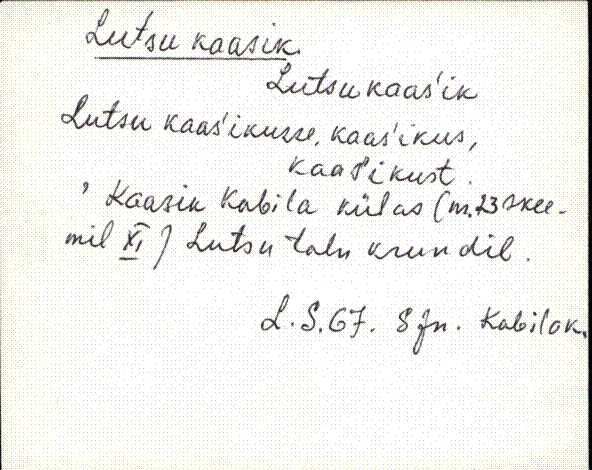 Lutsu kaasik.
Lutsu kaas'ik
Lutsu kaas'ikusse, kaas'ikus,
kaas'ikust.
Kaasik Kabila külas (nr. 23 skee-
mil XI) Lutsu talu krundil.
L. S. 67. Kabila k.